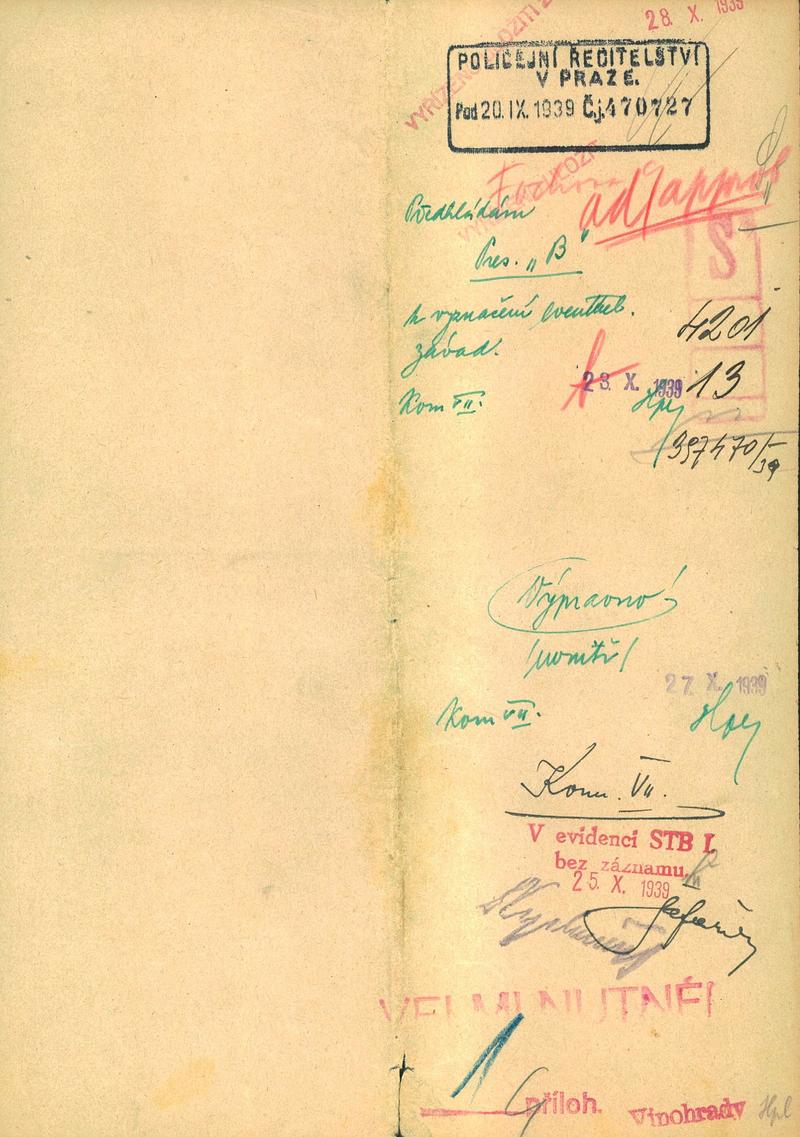 28. X. 1939
VYŘÍZENO
POLICEJNÍ ŘEDITELSTVÍ
V PRAZE.
Pod 20.IX.1939 Čj. 470727
Předkládám
ad
Pres. „B"
S
k vyznačení eventuel.
závad.
4201
23. X. 1939
13
Kom VII.
397470/39
Výpravno!
/uvnitř/
27. X. 1939
Kom VII.
Kom. VII.
V evidenci STB I.
bez záznamu.
25. X. 1939
VELMI NUTNÉ!
1
příloh.
Vinohrady